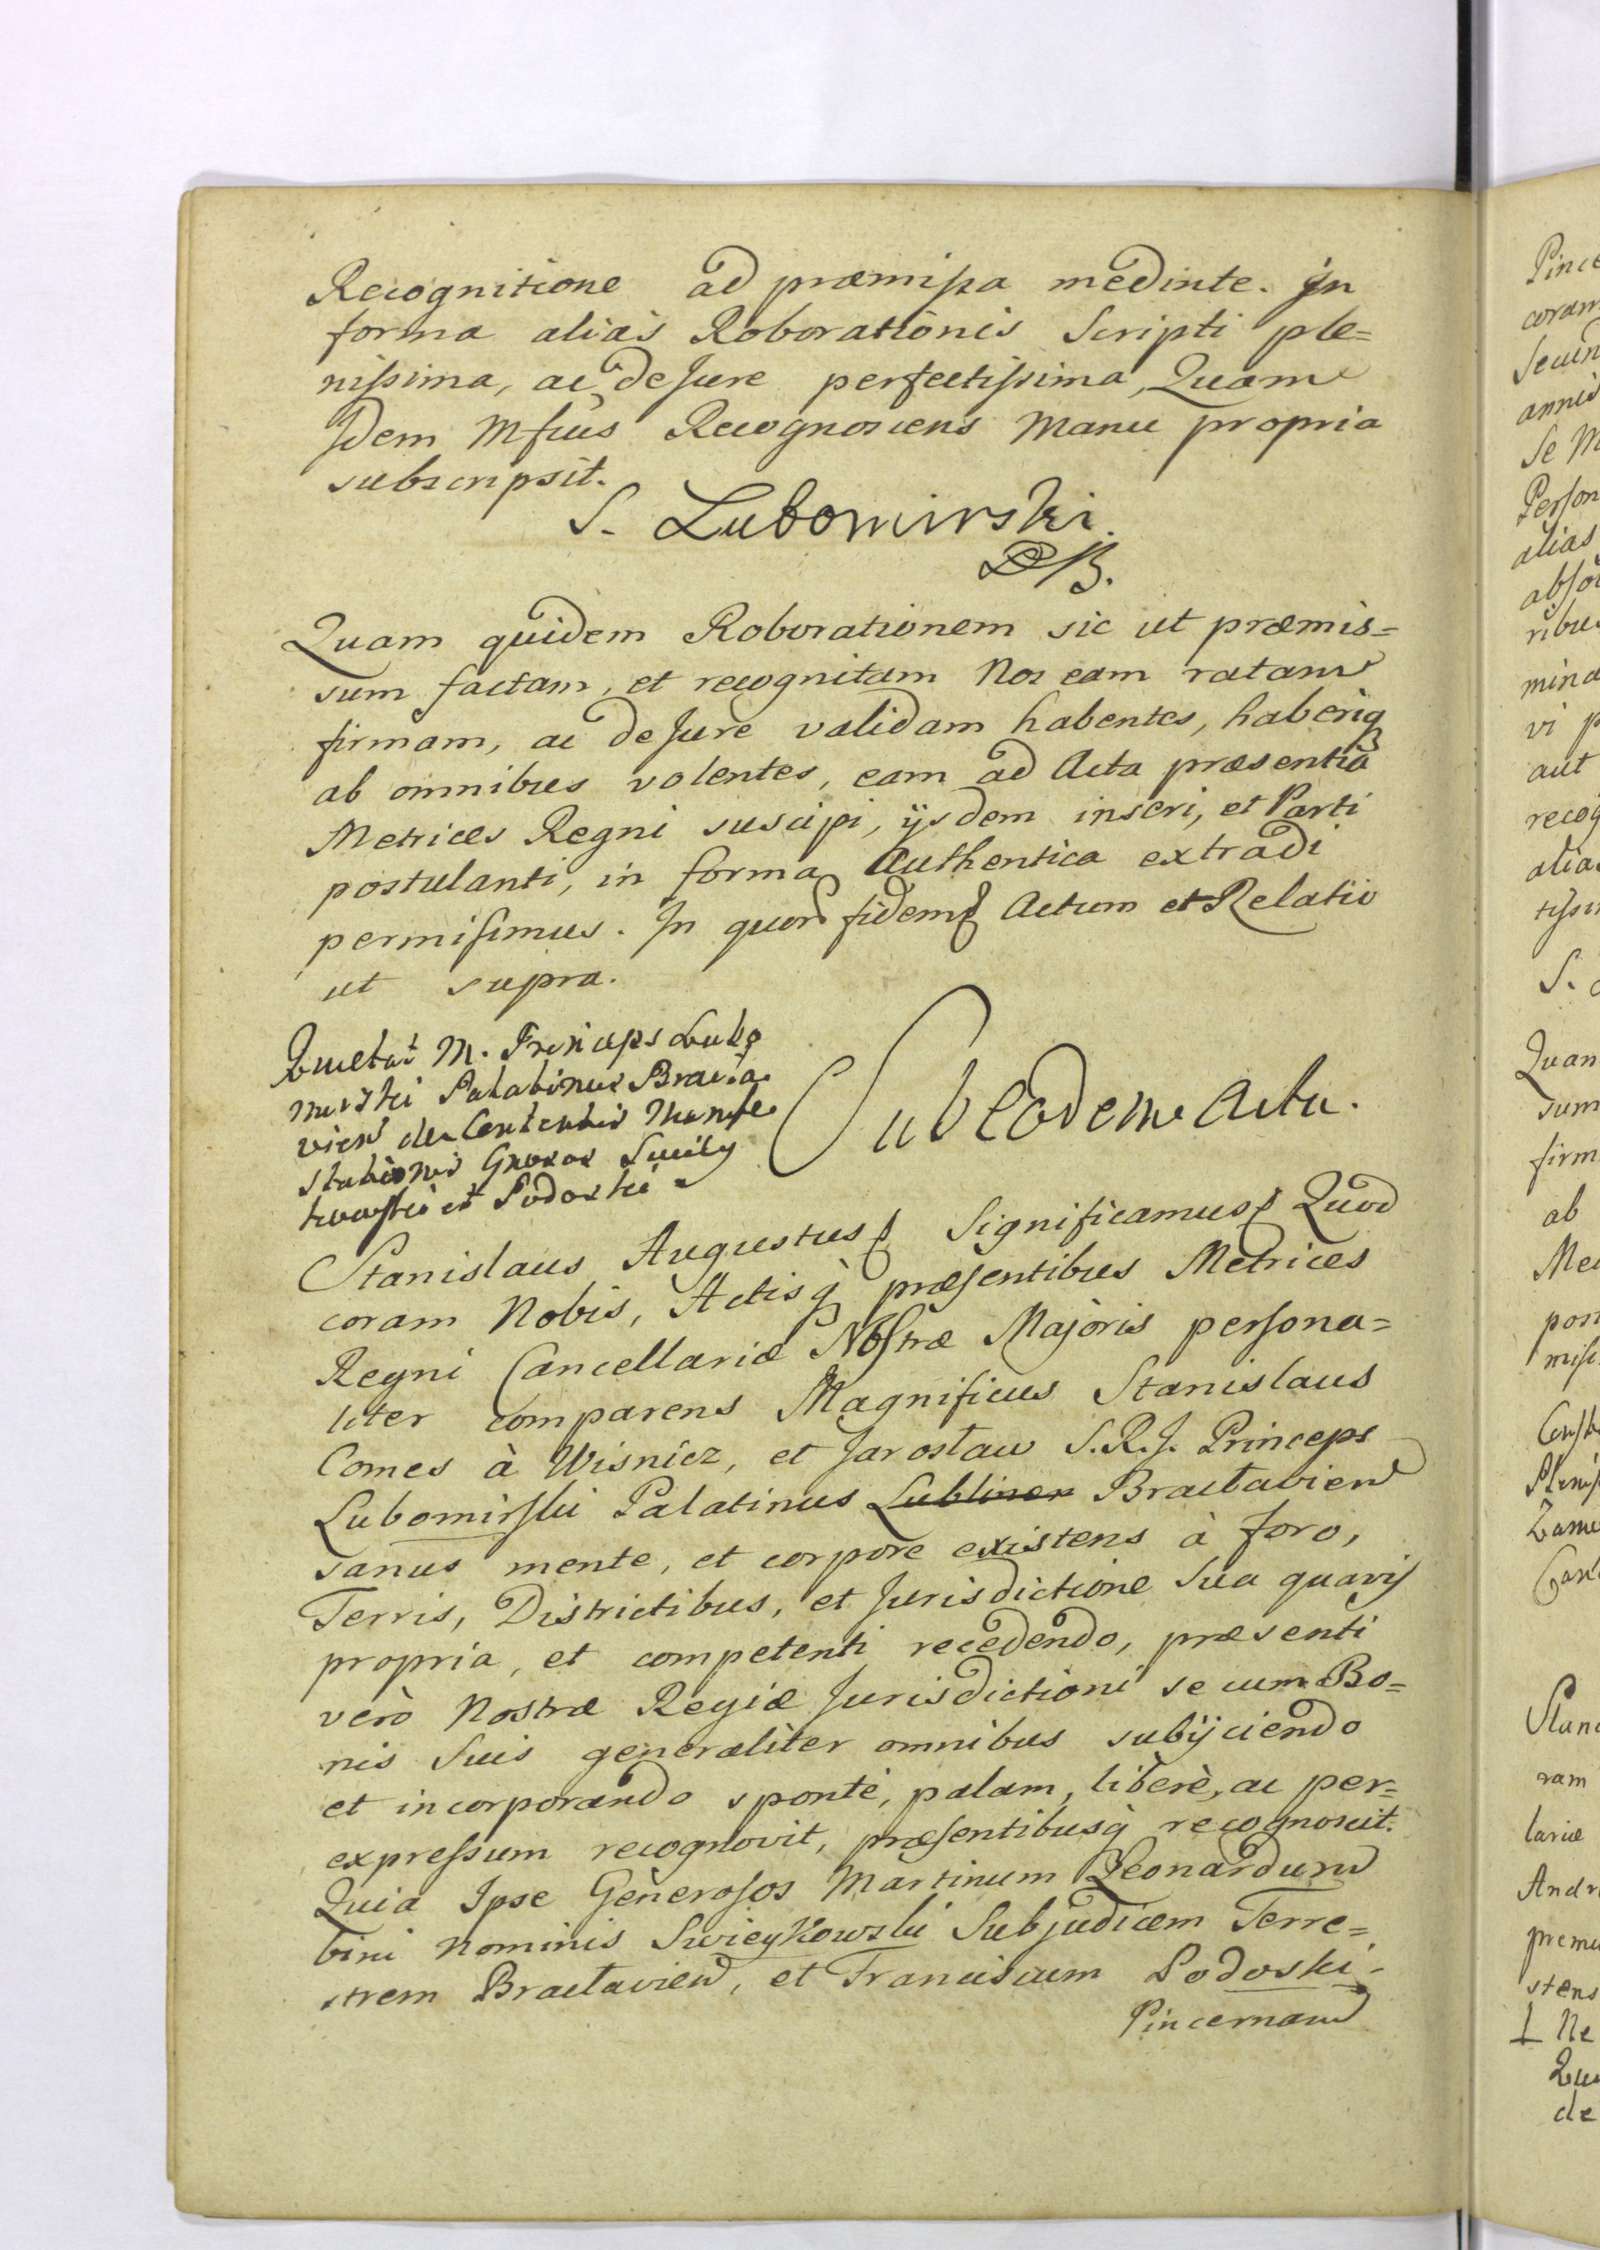 Recognitione ad præmissa medinte. In
forma alias Roborationis Scripti ple=
nissima, ac de Jure perfectissima, Quam
Idem Mfcus Recognoscens Manu propria
subscripsit.
S. Lubomirski
Quam quidem Roborationem sic ut præmis=
sum factam, et recognitam Nos eam ratam
firmam, ac de Jure validam habentes, haberiq
ab omnibus volentes, eam ad Acta præsentia
Metrices Regni suscipi, ijsdem inseri, et Parti
postulanti, in forma Authentica extradi
permisimus. In quor fidem Actum et Relatio
ut supra.
Quietat M. Princeps Lubo
mirski Palatinus Bracla
vien de Contentis Manife
stationis Gnosos Swiey
kowski et Podoski
Sub eodem Actu.
Stanislaus Augustus Significamus Quod
coram Nobis, Actisq præsentibus Metrices
Regni Cancellariæ Nostræ Majoris persona=
liter comparens Magnificus Stanislaus
Comes à Wisnicz, et Jarosław S.R.J. Princeps
Lubomirski Palatinus Lublinen Braclavien
sanus mente, et corpore existens à foro,
Terris, Districtibus, et Jurisdictione Sua quavis
propria, et competenti recedendo, præsenti
verò Nostræ Regiæ Jurisdictioni se cum Bo=
nis Suis generaliter omnibus subijciendo
et incorporando sponte, palam, liberè, ac per=
expressum recognovit, præsentibusq recognoscit.
Quia Ipse Generosos Martinum Leonardum
bini Nominis Swieykowski Subjudicem Terre=
strem Braclavien, et Franciscum Podoski
Pincernam
Pince
coram
Secun
annis
Se M
Person
alias
absol
ribus
mina
vi p
aut
recog
alia
tissi
S.
Quam
sum
firm
ab
Me
pos
misi
ram
lariæ
Andr
stens
Ne
de